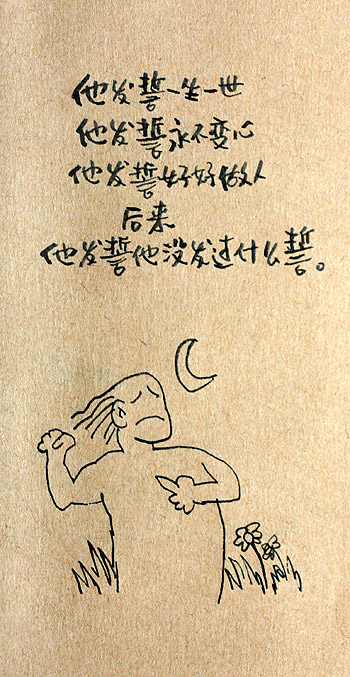 他发誓一生一世
他发誓永不变心
他发誓好好做人
后来
他发誓他没发过什么誓。